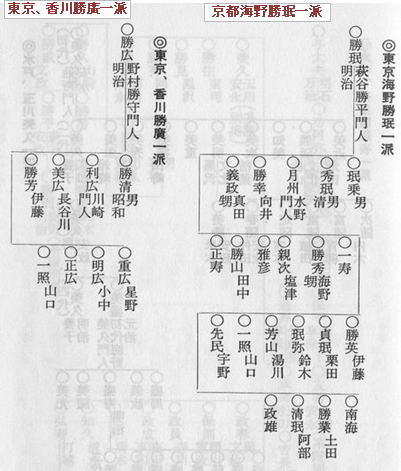 京都海野勝珉一派
東京、香川勝廣一派
◎東京海野勝珉一派
○勝珉 萩谷勝平門人 明治
○珉乗 男
○秀珉 男 清
○月州 水野 門人
○勝幸 向井
○義政 真田 甥
○一寿
○勝秀 海野
○親次 塩津
○雅彦
○勝山 田中
○正寿
○勝英 伊藤
○貞珉 栗田
○珉弥 鈴木
○芳山 湯川
○一照 山口
○先民 宇野
○南海
○勝業 土田
○清珉 阿部
○政雄
◎東京、香川勝廣一派
○勝広 野村勝守門人 明治
○勝清 男 昭和
○利広 川崎 門人
○美広 長谷川
○勝芳 伊藤
○重広 星野
○明広 小中
○正広
○一照 山口